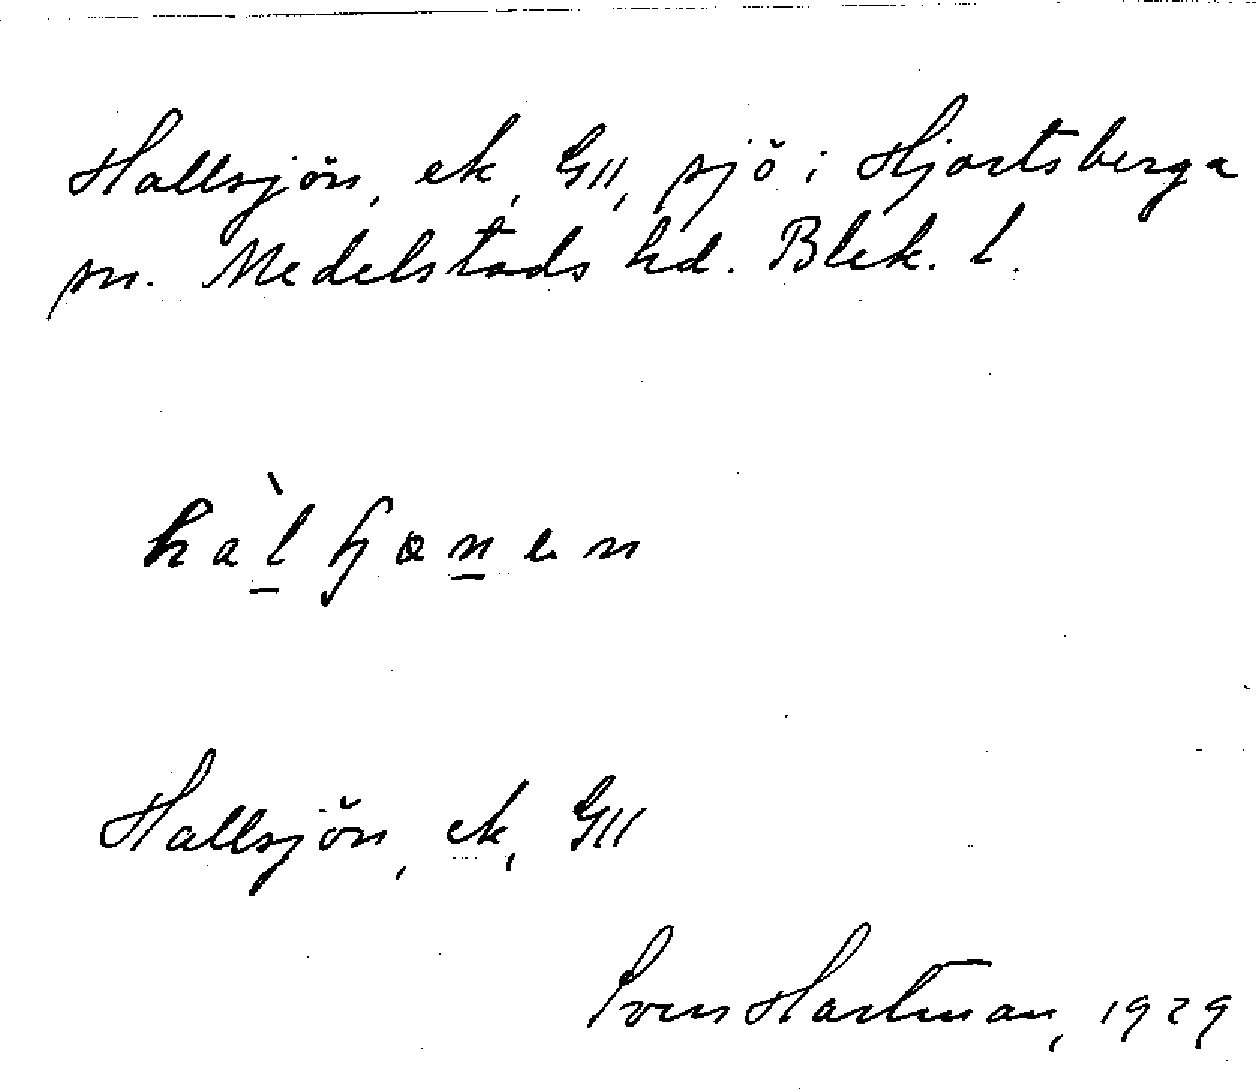 Hallsjön, ek, GII, sjö i Hjortsberga
sn. Medelstads hd. Blek. l.
Hallsjön, ek, GII
Sven Hartman, 1929